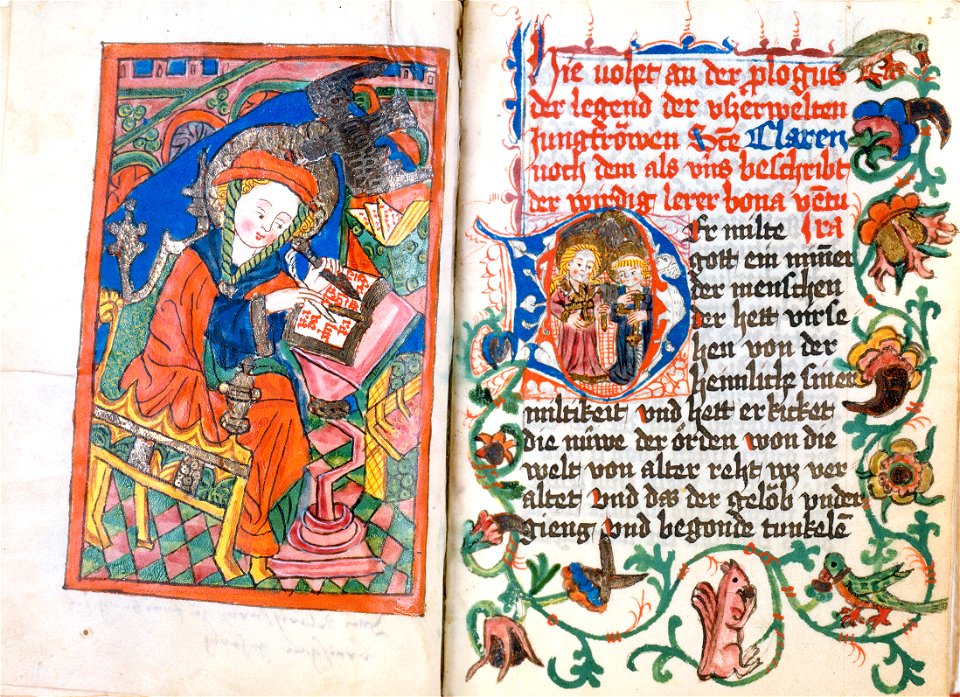 2
Hie volget an der prologus
der legend der vsserwelten
Jungfröwen Scte Claren
noch dem als vns beschribt
der wirdig lerer bona ventu
ra
Er milte
gott ein minner
der menschen
der hett virse
hen von der
heimliche siner
miltikeit vnd hett erkicket
die nüwe der örden won die
welt von alter reht wz ver
altet vnd das der gelöb vnder
gieng vnd begonde tunkelē